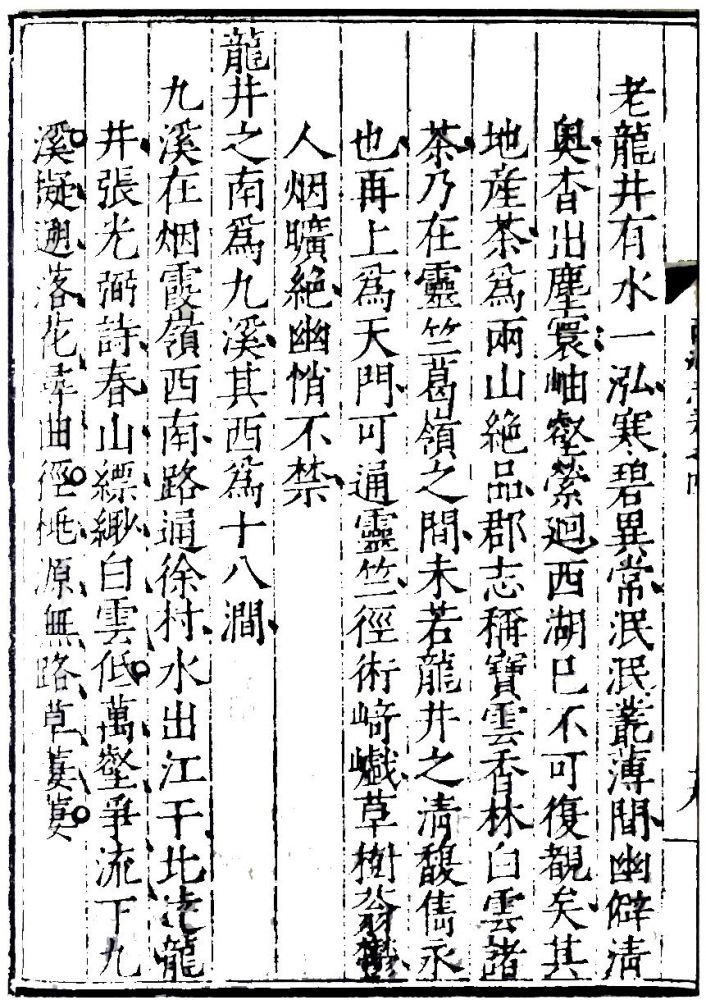 老龍井有水一泓寒碧異常泯泯叢薄間幽僻清
奥杳出塵寰岫壑縈迴西湖已不可復覩矣其
地産茶爲兩山絶品郡志稱寶雲香林白雲諸
茶乃在靈竺葛嶺之間未若龍井之清馥雋永
也再上爲天門可通靈竺徑術﨑巇草樹蓊欝
人烟曠絶幽悄不禁
龍井之南爲九溪其西爲十八澗
九溪在烟霞嶺西南路通徐村水出江干北達龍
井張光弼詩春山縹緲白雲低萬壑爭流下九
溪擬遡落花尋曲徑桃源無路草萋萋